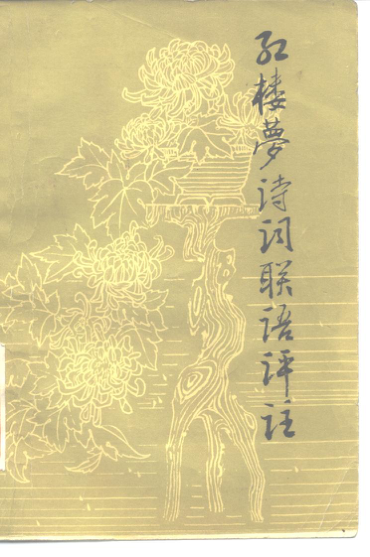 红楼夢诗词联语评註